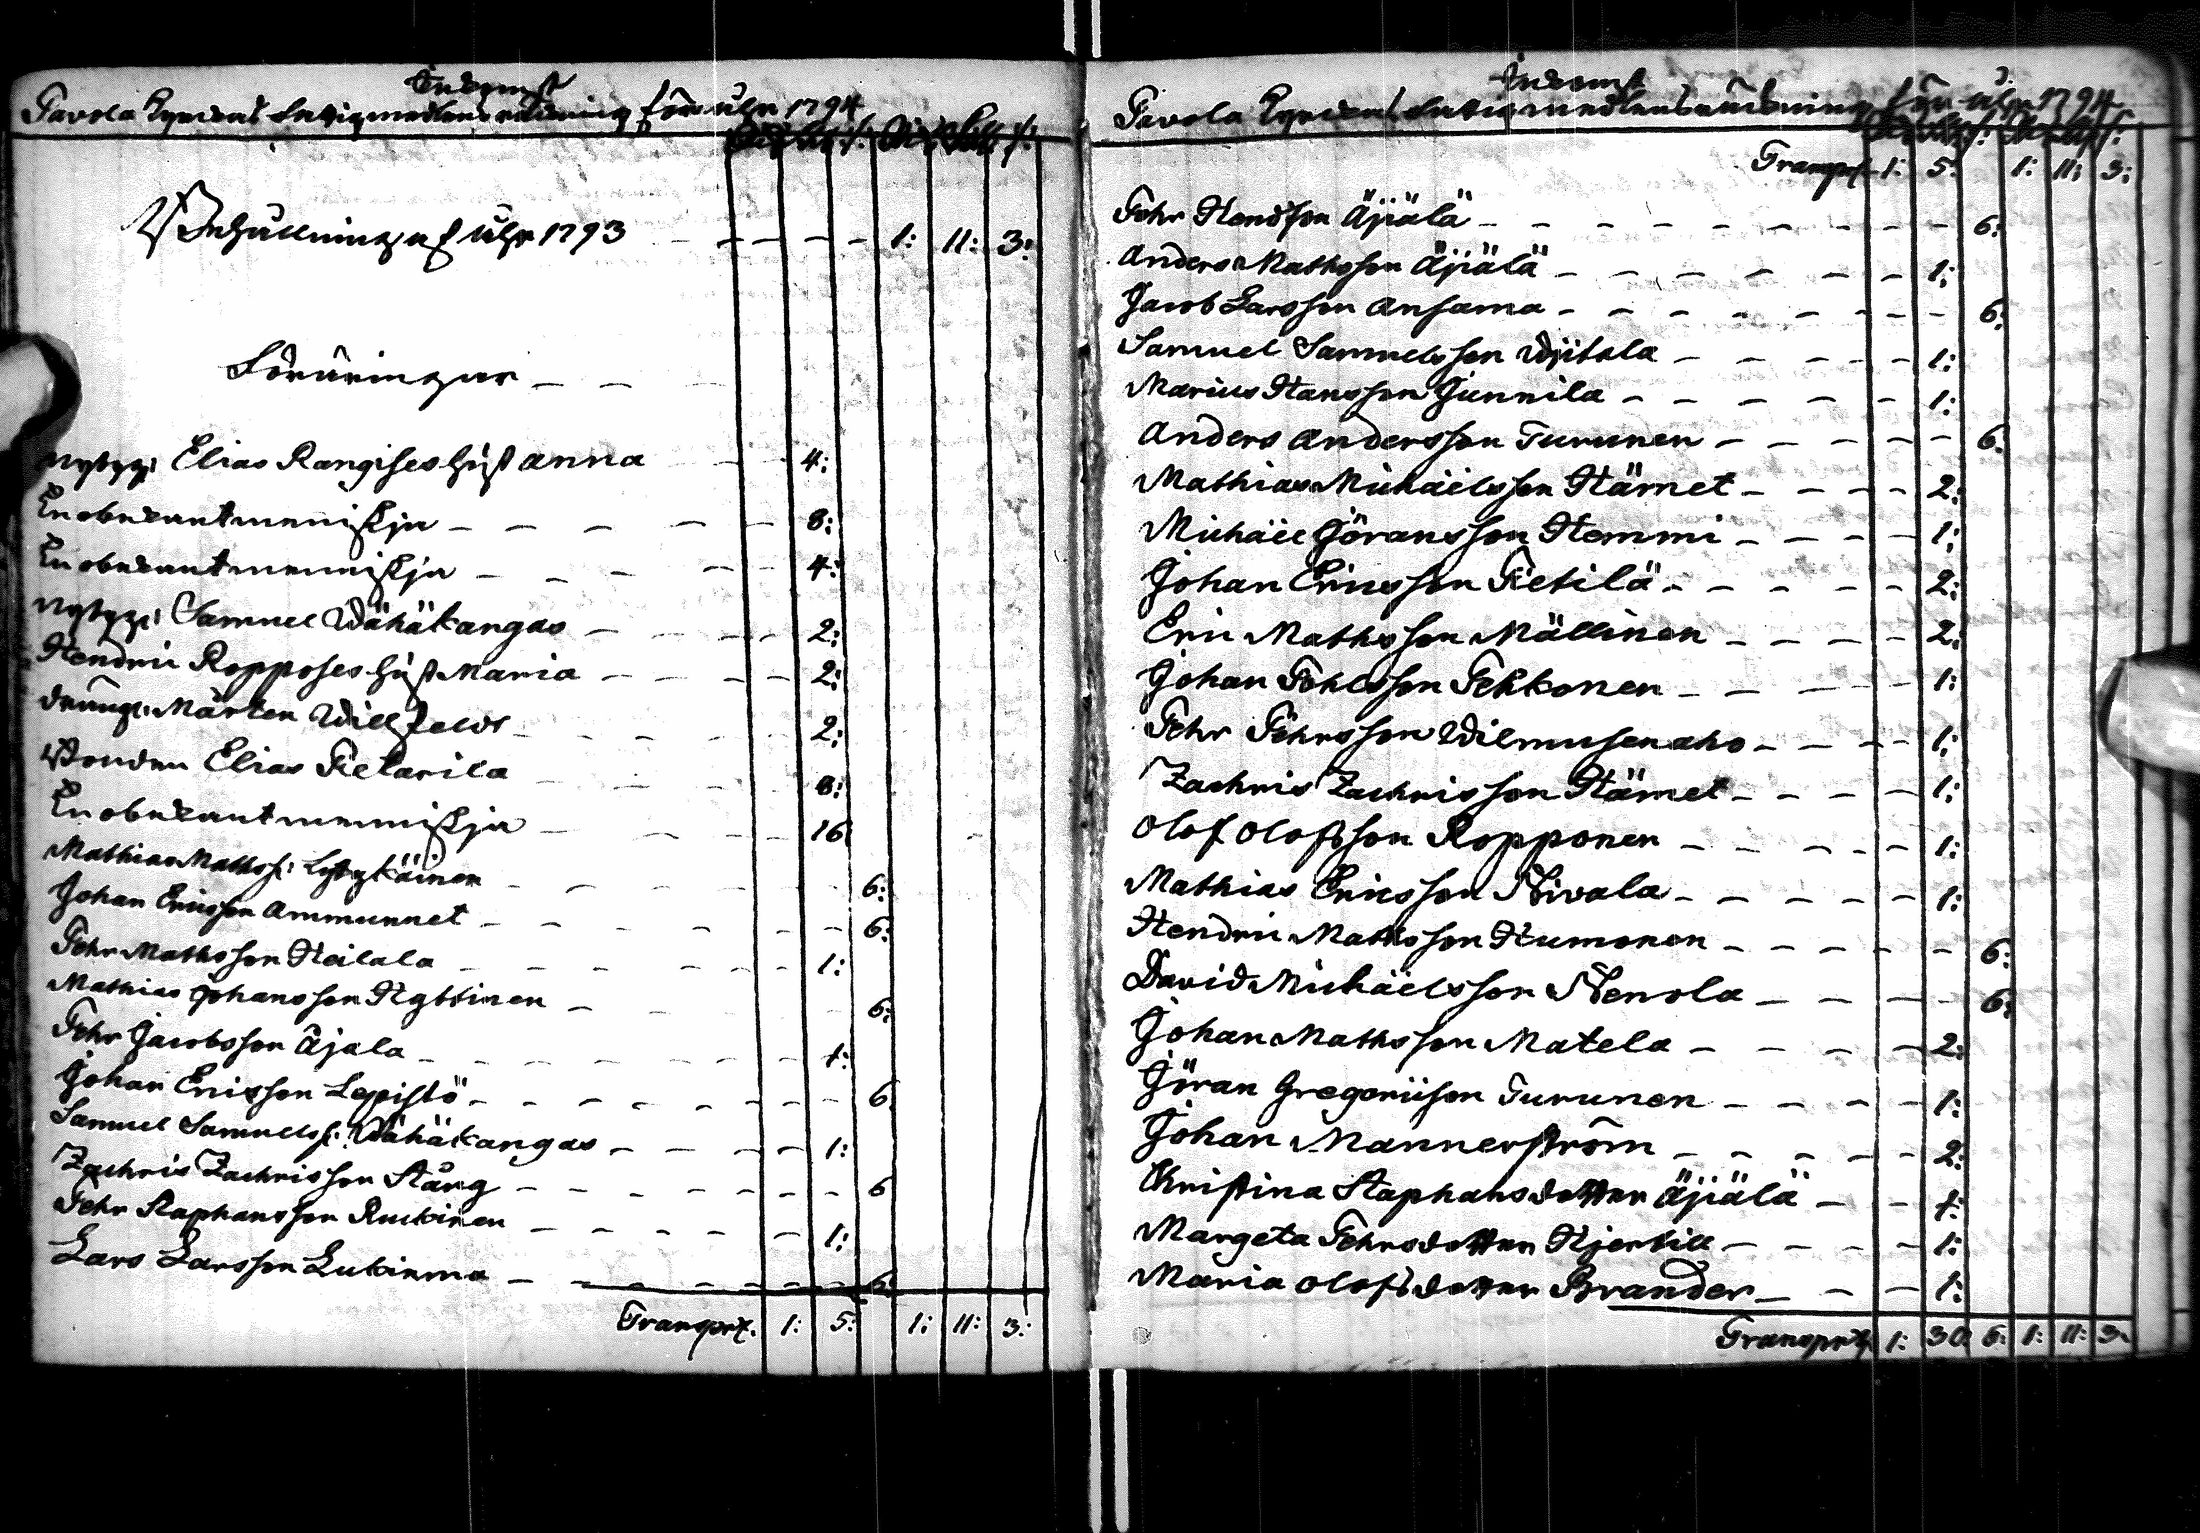 Inkomst
Pavola Kyrckas fattigmedlens räkning för åhr 1794
Behållning af åhr 1793 1: 11: 3:
Föräringar
Nybygg: Elias Rangises hust Anna 4:
En obekant menniskja 8:
En obekant menniskja 4:
Nybygg: Samuel Wähäkangas 2:
Hendric Ropposes hust Maria 2:
Dräng: Mårten Willfeldt 2:
Bonden Elias Pietarila 8:
En obekant menniskja 16
Mathias Mathss: Lytykäinen 6:
Johan Ericsson Ammunnet 6:
Pehr Mathsson Heilala 1:
Mathias Johansson Hyttinen 6:
Pehr Jacobsson Äjala 1:
Johan Ericsson Lepistö 6
Samuel Samuelss: Wähäkangas 1:
Zachris Zachrisson Stång 6
Pehr Staphansson Ruckinen 1:
Lars Larsson Lukinma 6:
Transport. 1: 5: 1: 11: 3:
Inkomst
Pavola Kyrckas fattigmedlens räkning för åhr 1794
Transport 1: 5: 1: 11: 3:
Pehr Hendsson Äjiälä 6:
Anders Mathsson Äjiälä 1:
Jacob Larsson Ansama 6:
Samuel Samuelsson Wjitala 1:
Marcus Hansson Junnila 1:
Anders Andersson Turunen 6
Mathias Michäelsson Härnet 2:
Michäel Jöransson Hemmi 1:
Johan Ericsson Pietilä 2:
Eric Mathsson Mällinen 2:
Johan Pohlsson Pekkonen 1:
Pehr Pehrsson Wilmusenaho 1:
Zachris Zachrisson Härnet 1:
Olof Olofsson Ropponen 1:
Mathias Ericsson Niwala 1:
Hendric Mathsson Humonen 6:
David Michäelsson Nenola 6:
Johan Mathsson Matela 2:
Jöran Gregoriison Turunen 1:
Johan Mannerström 2:
Christina Staphansdotter Äjiälä 1:
Margeta Pehrsdotter Hjertill 1:
Maria Olofsdotter Brander 1:
Transport 1: 30 6: 1: 11: 3: